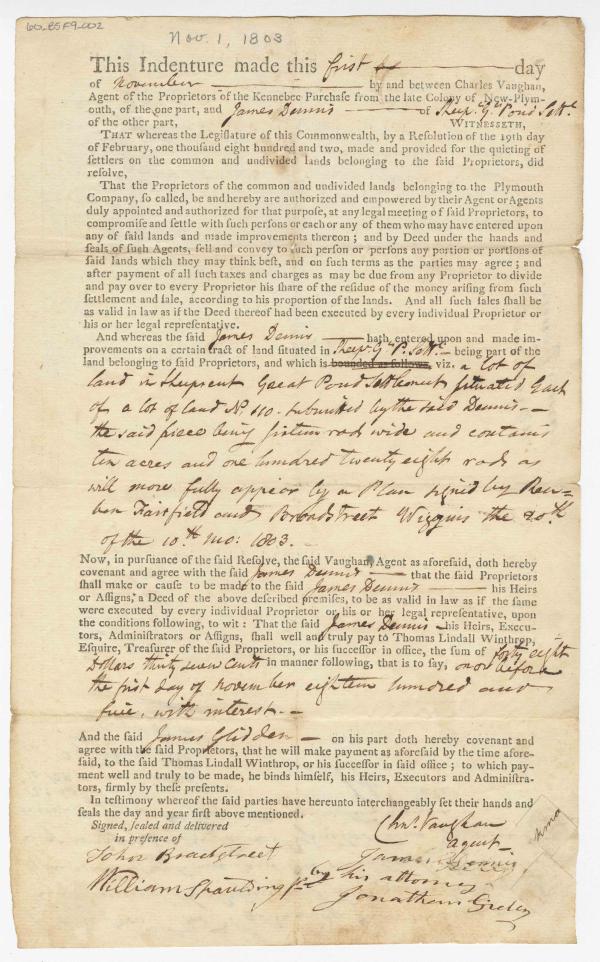 60_85F9_002
Nov. 1, 1803
This Indenture made this first day
of November by and between Charles Vaughan,
Agent of the Proprietors of the Kennebec Purchase from the late Colony of New-Plym-
outh, of the one part, and James Dennis of Sheept. Gt. Pond Settt.
of the other part, WITNESSETH,
THAT whereas the Legislature of this Commonwealth, by a Resolution of the 19th day
of February, one thousand eight hundred and two, made and provided for the quieting of
settlers on the common and undivided lands belonging to the said Proprietors, did
resolve,
That the Proprietors of the common and undivided lands belonging to the Plymouth
Company, so called, be and hereby are authorized and empowered by their Agent or Agents
duly appointed and authorized for that purpose, at any legal meeting of said Proprietors, to
compromise and settle with such persons or each or any of them who may have entered upon
any of said lands and made improvements thereon ; and by Deed under the hands and
seals of such Agents, sell and convey to such person or persons any portion or portions of
said lands which they may think best, and on such terms as the parties may agree ; and
after payment of all such taxes and charges as may be due from any Proprietor to divide
and pay over to every Proprietor his share of the residue of the money arising from such
settlement and sale, according to his proportion of the lands. And all such sales shall be
as valid in law as if the Deed thereof had been executed by every individual Proprietor or
his or her legal representative.
And whereas the said James Dennis hath entered upon and made im-
provements on a certain tract of land situated in Sheept. Gt. P. Sett. being part of the
land belonging to said Proprietors, and which is bounded as follows, viz. a lot of
land in Sheepscut Great Pond Settlement situated East
of a lot of land No. 110. submitted by the said Dennis -
the said piece being sixteen rods wide and contains
ten acres and one hundred twenty eight rods as
will more fully appear by a Plan signed by Reu-
ben Fairfield and Broadstreet Wiggins the 20th
of the 10th mo: 1803.
Now, in pursuance of the said Resolve, the said Vaughan, Agent as aforesaid, doth hereby
covenant and agree with the said James Dennis that the said Proprietors
shall make or cause to be made to the said James Dennis his Heirs
or Assigns, a Deed of the above described premises, to be as valid in law as if the same
were executed by every individual Proprietor or his or her legal representative, upon
the conditions following, to wit : That the said James Dennis his Heirs, Execu-
tors, Administrators or Assigns, shall well and truly pay to Thomas Lindall Winthrop,
Esquire, Treasurer of the said Proprietors, or his successor in office, the sum of forty eight
Dollars thirty seven Cents in manner following, that is to say, on or before
the first day of November eighteen hundred and
five, with interest. -
And the said James Glidden on his part doth hereby covenant and
agree with the said Proprietors, that he will make payment as aforesaid by the time afore-
said, to the said Thomas Lindall Winthrop, or his successor in said office ; to which pay-
ment well and truly to be made, he binds himself, his Heirs, Executors and Administra-
tors, firmly by these presents.
In testimony whereof the said parties have hereunto interchangeably set their hands and
seals the day and year first above mentioned.
Signed, sealed and delivered
in presence of
Chas. Vaughan
agent
John Bradstreet
James Dennis
William Spaulding Jr.
by his attorney
Jonathan